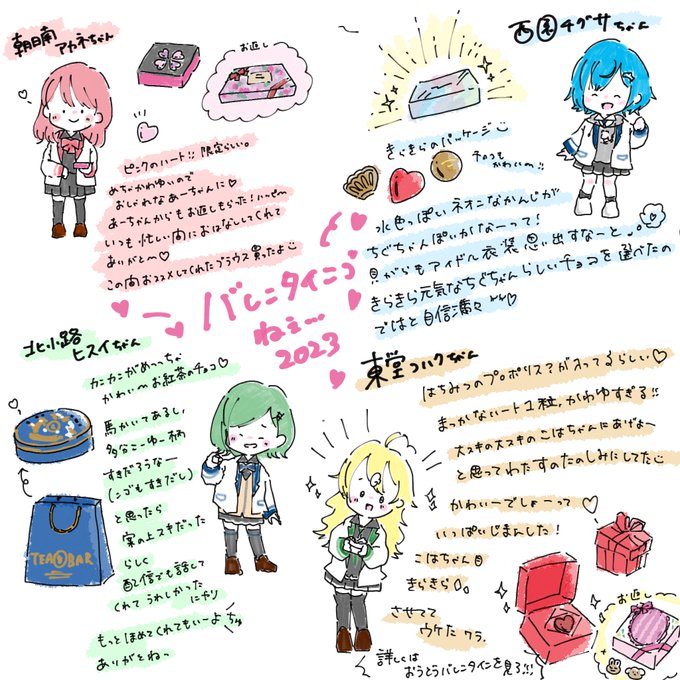 朝日南
アカネちゃん
お返し
ピンクのハート!! 限定らしい。
めちゃかわゆいので
おしゃれなあーちゃんに♡
あーちゃんからもお返しもらった!ハピー
いつも忙しい間におはなししてくれて
ありがと〜♡
この間おススメしてくれたブラウス買ったよ
西園チグサちゃん
きらきらのパッケージ
チョコも
かわいい!!
水色っぽいネオンなかんじが
ちぐちゃんぽいかなーって!
貝がらもアイドル衣装思い出すなーと
きらきら元気なちぐちゃんらしいチョコを選べたの
ではと自信満々♡
バレンタインっ
ねぇ…
2023
北小路
ヒスイちゃん
カンカンがめっちゃ
かわい〜お紅茶のチョコ♡
馬かいてあるし、
多分こーゆー柄
すきだろうなー
と思ったら
案の上スキだった
らしく
配信でも話して
くれてうれしかった
ニヤリ
もっとほめてくれてもいーよ
ありがとねっ
TEA BAR
東堂コハクちゃん
はちみつのプロポリス?が入ってるらしい♡
まっかなハート1粒、かわゆすぎる!!
大スキの大スキのこはちゃんにあげよー
と思ってわたすのたのしみにしてた
かわいーでしょーって
いっぱいじまんした!
こはちゃん目
きらきら
させてて
ウケた ワラ
お返し
詳しくは
おうとうバレンタインを見ろ!!!